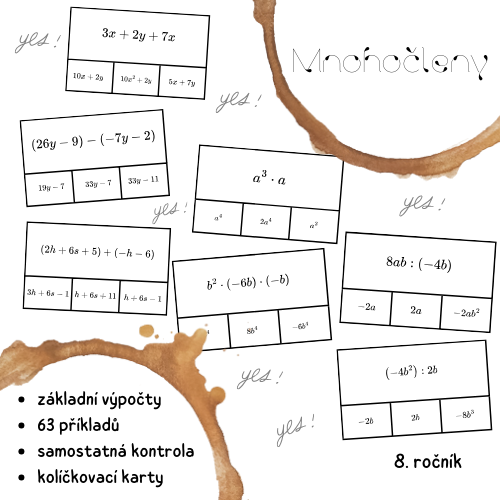 yes!
3x + 2y + 7x
10x + 2y 10x² + 2y 5x + 7y
Mnohočleny
yes!
(26y − 9) − (−7y − 2)
19y − 7 33y − 7 33y − 11
yes!
a³ · a
a⁴ 2a⁴ a³
yes!
(2h + 6s + 5) + (−h − 6)
3h + 6s − 1 h + 6s + 11 h + 6s − 1
b² · (−6b) · (−b)
8b⁴ −6b⁴
8ab : (−4b)
−2a 2a −2ab²
yes!
(−4b²) : 2b
−2b 2b −8b³
yes!
• základní výpočty
• 63 příkladů
• samostatná kontrola
• kolíčkovací karty
8. ročník